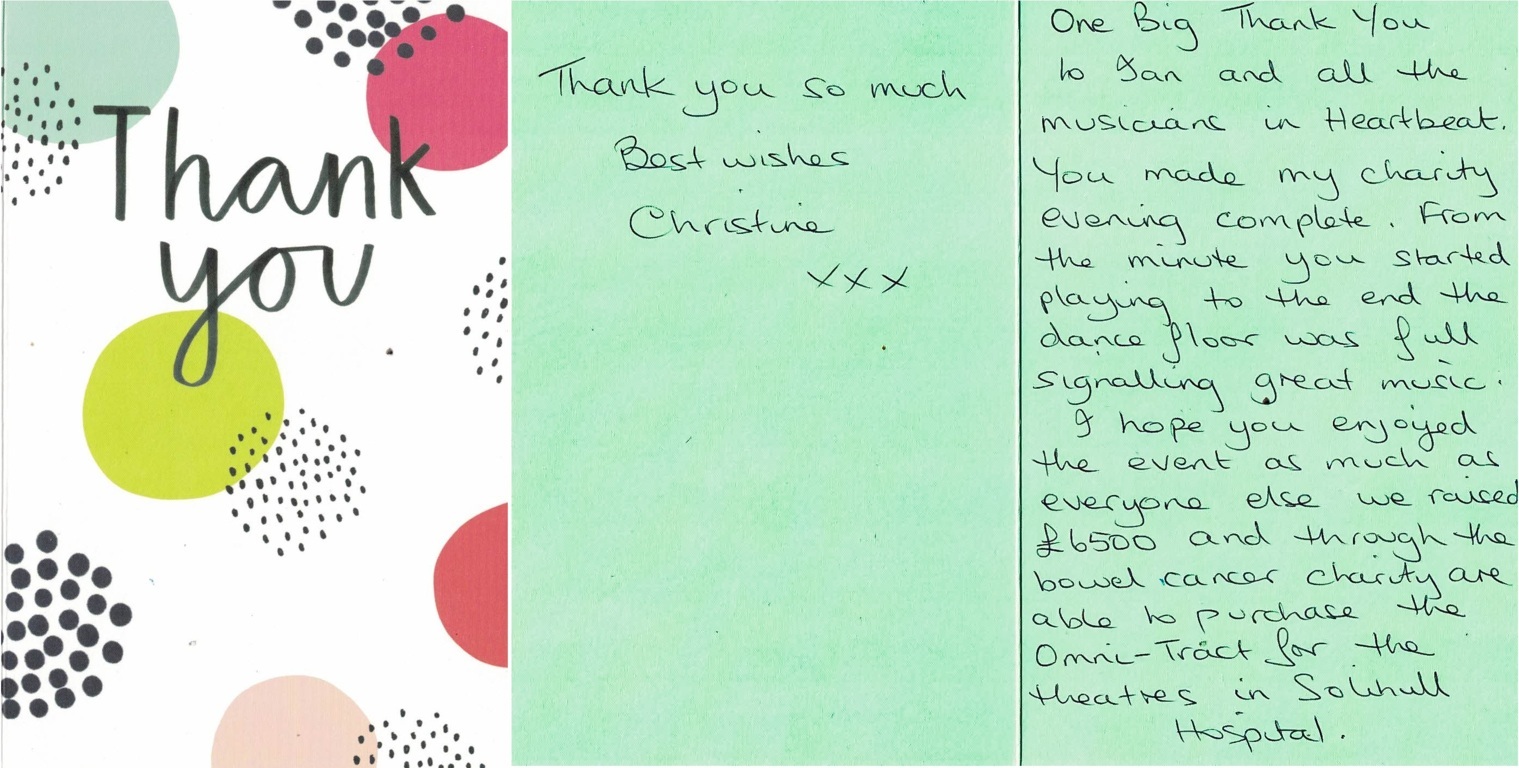 Thank
you
Thank you so much
Best wishes
Christine
xxx
One Big Thank You
to Ian and all the
musicians in Heartbeat.
You made my charity
evening complete. From
the minute you started
playing to the end the
dance floor was full
signalling great music.
I hope you enjoyed
the event as much as
everyone else we raised
£6500 and through the
bowel cancer charity are
able to purchase the
Omni-Tract for the
theatres in Solihull
Hospital.